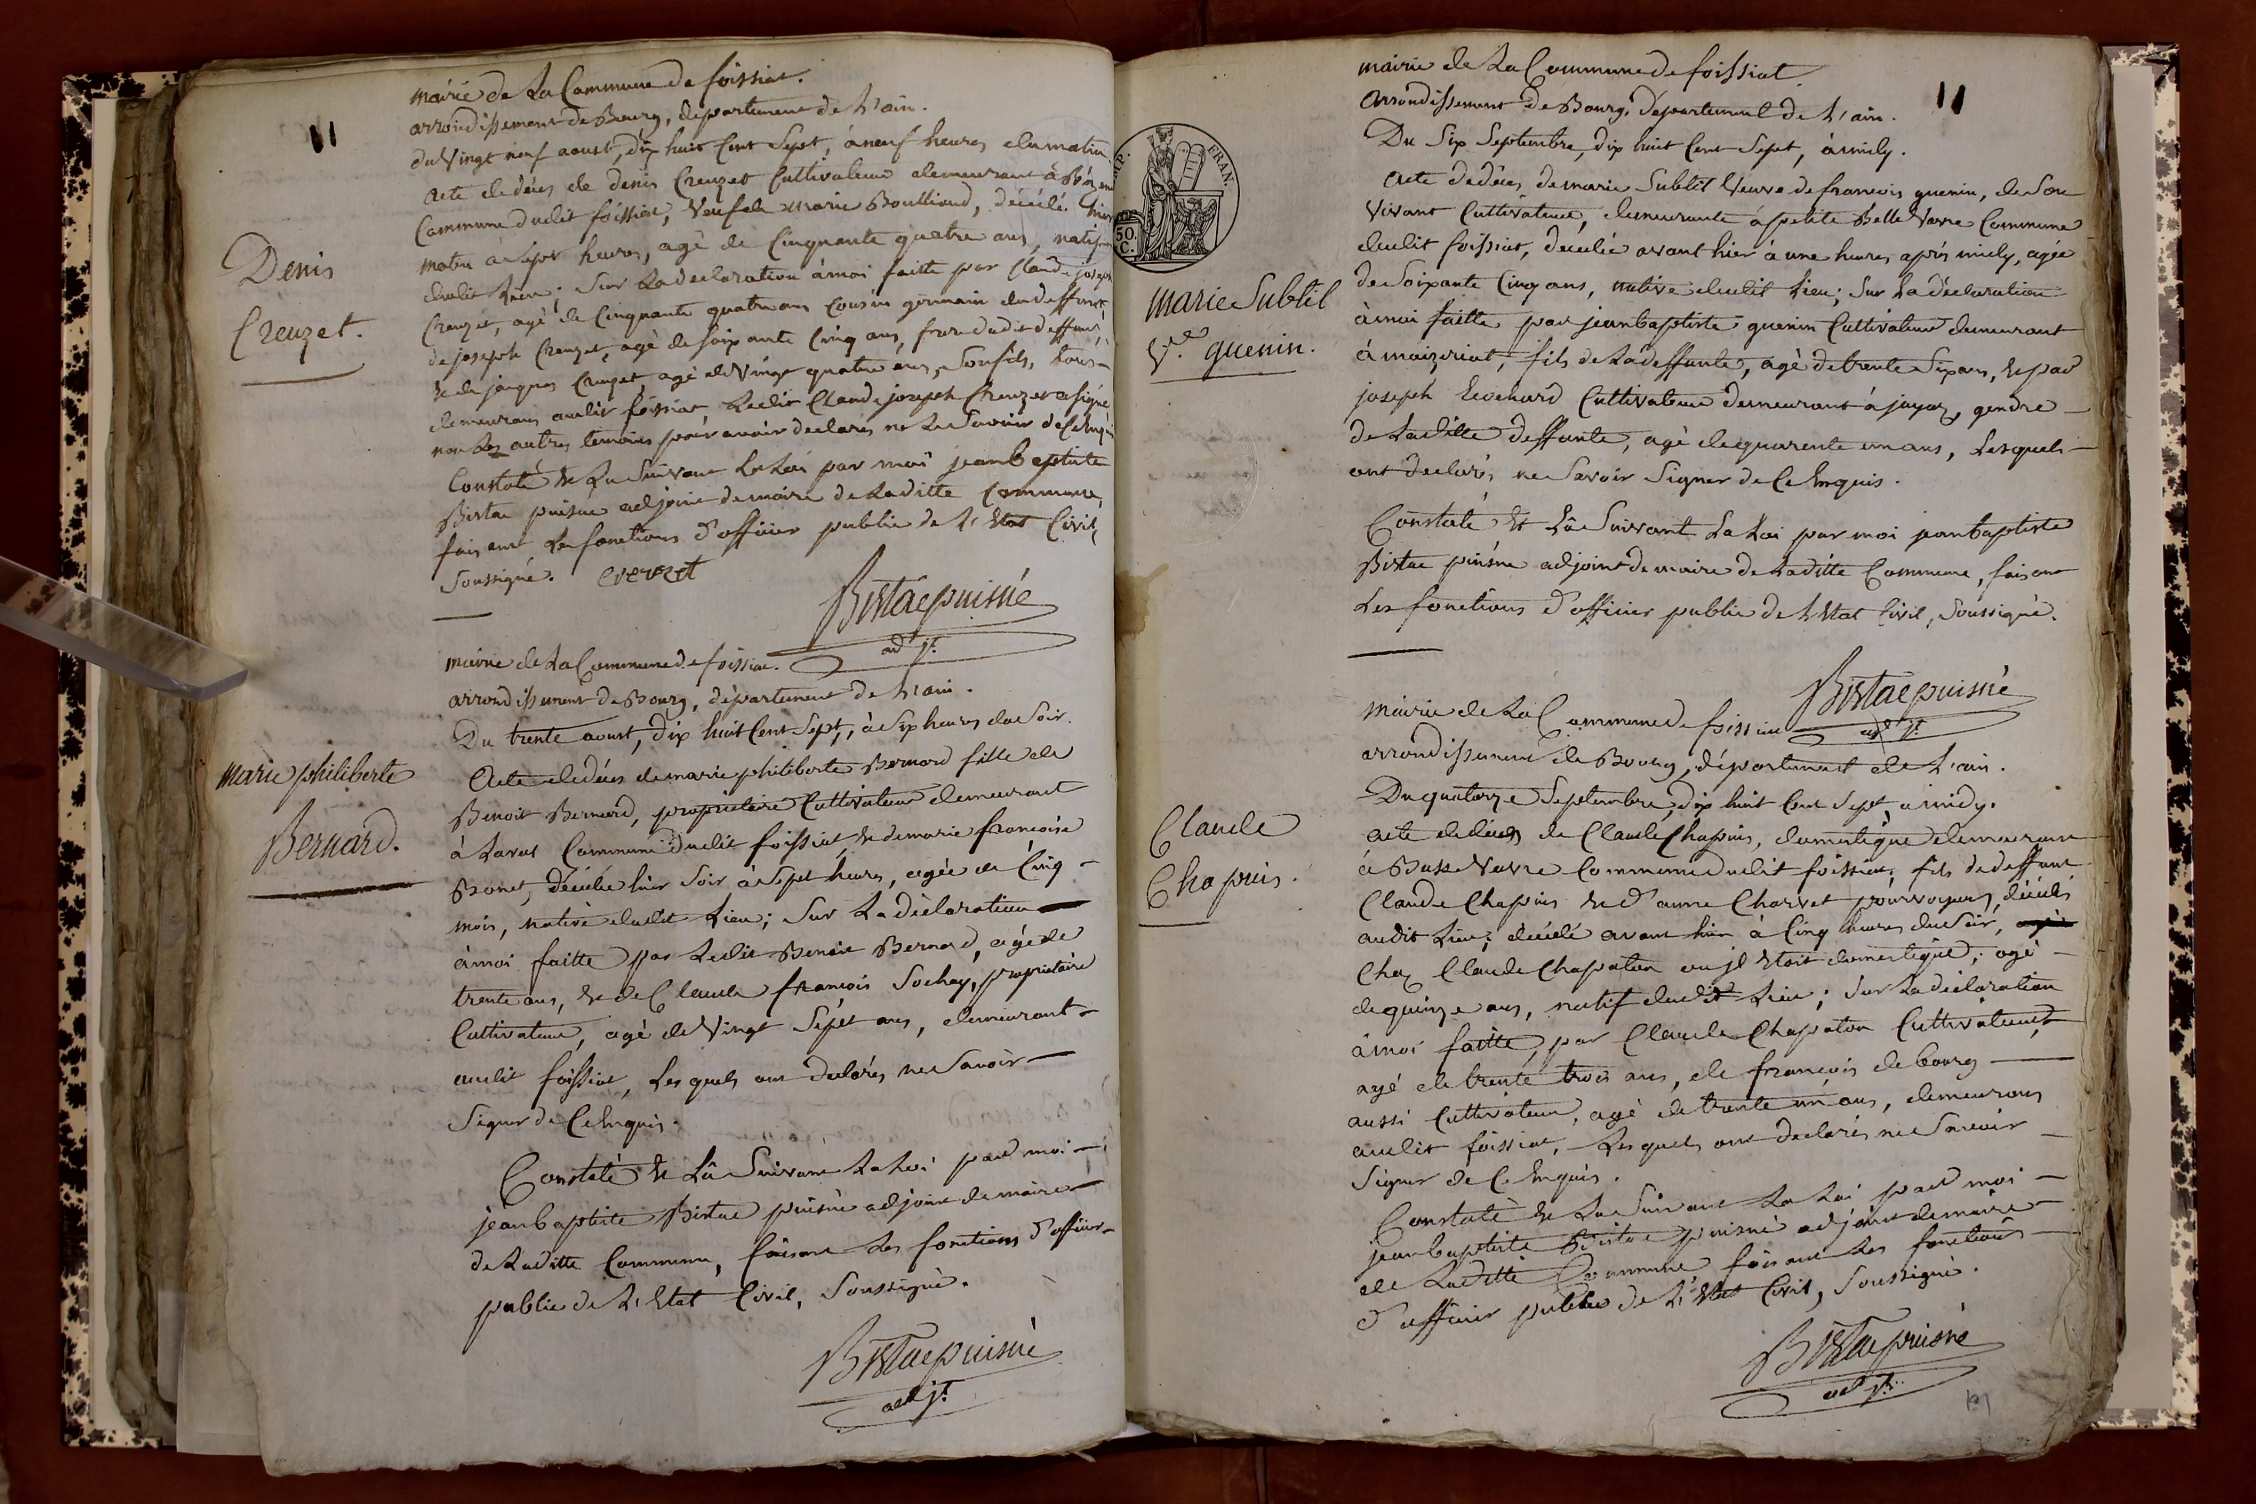 11
mairie de La Commune de foissiat.
arrondissement de Bourg, département de L'ain.
du Vingt neuf aoust, dix huit Cent Sept, à neuf heures du matin.
Acte de décès de denis Creuzet Cultivateur demeurant à
Commune dudit foissiat, Veuf de marie Boullioud, décédé hier
matin à Sept heures, agé de Cinquante quatre ans, natif
dudit Lieu; Sur La declaration à moi faitte par Claude joseph
Creuzet, agé de Cinquante quatre ans Cousin germain du deffunt,
de joseph Creuzet, agé de soixante Cinq ans, frere dudit deffunt,
et de jacques Creuzet, agé de Vingt quatre ans, Son fils, tous
demeurans audit foissiat, Ledit Claude joseph Creuzet a signé
non les autres temoins pour avoir declarés ne Le Savoir de Ce Enquis
Constaté et Lu Suivant La Loi par moi jean baptiste
Bistac puisné adjoint de maire de Laditte Commune,
faisant Les fonctions d'officier public de L'Etat Civil,
Soussigné. Creuzet
Bistac puisné
adjt.
Denis
Creuzet.
mairie de La Commune de foissiat.
arrondissement de Bourg, département de L'ain.
Du trente aoust, dix huit Cent Sept, à Six heures du Soir.
Acte de décès de marie philiberte Bernard fille de
Benoit Bernard, propriétaire Cultivateur demeurant
à Lavat Commune dudit foissiat et de marie francoise
Bonet, décédée hier Soir à Sept heures, agée de Cinq
mois, native dudit Lieu; Sur La déclaration
à moi faitte par Ledit Benoit Bernard, agé de
trente ans, et de Claude françois Sochay, propriétaire
Cultivateur, agé de Vingt Sept ans, demeurant
audit foissiat, Lesquels ont declarés ne Savoir
Signer de Ce Enquis.
Constaté et Lû Suivant La Loi par moi
jean baptiste Bistac puisné adjoint de maire
de Laditte Commune, faisant Les fonctions d'officier
public de L'Etat Civil, Soussigné.
Bistac puisné
adjt.
marie philiberte
Bernard.
11
mairie de La Commune de foissiat
Arrondissement de Bourg, département de L'ain.
Du Six Septembre, dix huit Cent Sept, à midy.
Acte de décès de marie Subtil Veuve de francois guenin, de Son
Vivant Cultivateur, demeurante a petite Belle Vavre Commune
dudit foissiat, décédée avant hier à une heures après midy, agée
de Soixante Cinq ans, native dudit Lieu; Sur La déclaration
à moi faitte par jean baptiste guenin Cultivateur demeurant
à maizeriat, fils de La deffunte, agé de trente Six ans, et par
joseph Cultivateur demeurant à jayat, gendre
de Laditte deffunte, agé de quarente un ans, Lesquels
ont declarés ne Savoir Signer de Ce Enquis.
Constaté et Lû Suivant La Loi par moi jean baptiste
Bistac puisné adjoint de maire de Laditte Commune, faisant
Les fonctions d'officier public de L'Etat Civil, Soussigné.
Bistac puisné
adjt.
FRAN.
50.
C.
marie Subtil
Ve. guenin.
mairie de La Commune de foissiat
arrondissement de Bourg, département de L'ain.
Du quatorze Septembre, dix huit Cent Sept, a midy.
acte de décès de Claude Chapuis, domestique demeurant
à Basse Vavre Commune dudit foissiat, fils de deffunt
Claude Chapuis et d'anne Charvet pourvoyeurs, décédés
audit Lieu; décédé avant hier à Cinq heures du Soir,
Chez Claude Chapaton ou jl Etoit domestique, agé
de quinze ans, natif dudit Lieu; Sur La déclaration
à moi faitte, par Claude Chapaton Cultivateur,
agé de trente trois ans, de françois de bourg
aussi Cultivateur, agé de trente un ans, demeurans
audit foissiat, Lesquels ont declarés ne Savoir
Signer de Ce Enquis.
Constaté et Lu Suivant La Loi par moi
jean baptiste Bistac puisné adjoint de maire
de Laditte Commune faisant Les fonctions
d'officier public de L'Etat Civil, Soussigné.
Bistac puisné
adjt.
Claude
Chapuis.